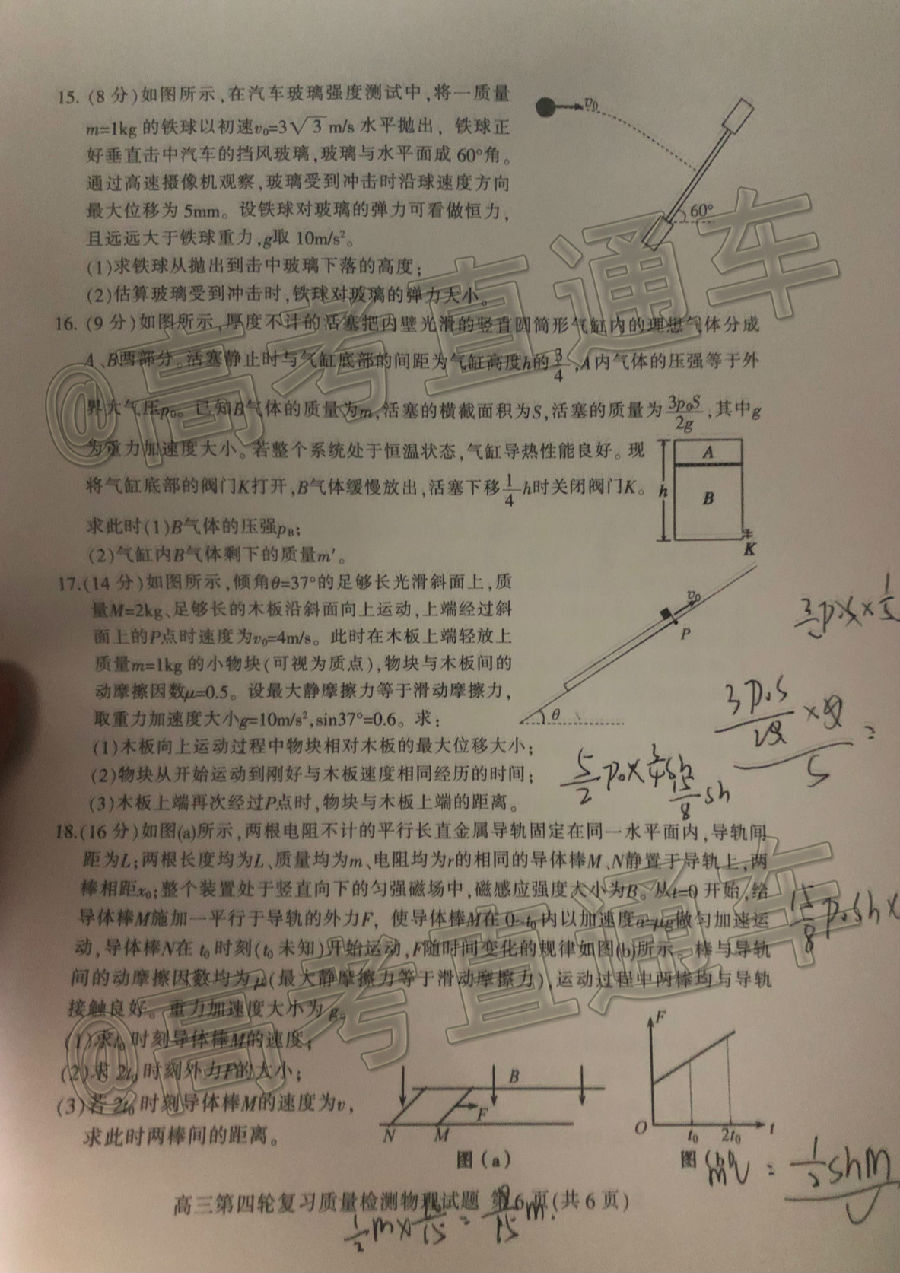 15. (8 分)如图所示,在汽车玻璃强度测试中,将一质量
m=1kg 的铁球以初速v₀=3√3 m/s 水平抛出, 铁球正
好垂直击中汽车的挡风玻璃,玻璃与水平面成 60°角。
通过高速摄像机观察,玻璃受到冲击时沿球速度方向
最大位移为 5mm。设铁球对玻璃的弹力可看做恒力,
且远远大于铁球重力,g取 10m/s²。
(1)求铁球从抛出到击中玻璃下落的高度;
(2)估算玻璃受到冲击时,铁球对玻璃的弹力大小。
v₀
60°
16. (9 分)如图所示,厚度不计的活塞把内壁光滑的竖直圆筒形气缸内的理想气体分成
A、B两部分。活塞静止时与气缸底部的间距为气缸高度h的3/4,A内气体的压强等于外
界大气压p₀。已知B气体的质量为m,活塞的横截面积为S,活塞的质量为3p₀S/2g,其中g
为重力加速度大小。若整个系统处于恒温状态,气缸导热性能良好。现
将气缸底部的阀门K打开,B气体缓慢放出,活塞下移1/4h时关闭阀门K。
求此时(1)B气体的压强pB;
(2)气缸内B气体剩下的质量m′。
A
h
B
K
17.(14 分)如图所示,倾角θ=37°的足够长光滑斜面上,质
量M=2kg、足够长的木板沿斜面向上运动,上端经过斜
面上的P点时速度为v₀=4m/s。此时在木板上端轻放上
质量m=1kg 的小物块(可视为质点),物块与木板间的
动摩擦因数μ=0.5。设最大静摩擦力等于滑动摩擦力,
取重力加速度大小g=10m/s²,sin37°=0.6。求:
(1)木板向上运动过程中物块相对木板的最大位移大小;
(2)物块从开始运动到刚好与木板速度相同经历的时间;
(3)木板上端再次经过P点时,物块与木板上端的距离。
v₀
P
θ
18.(16 分)如图(a)所示,两根电阻不计的平行长直金属导轨固定在同一水平面内,导轨间
距为L;两根长度均为L、质量均为m、电阻均为r的相同的导体棒M、N静置于导轨上,两
棒相距x₀;整个装置处于竖直向下的匀强磁场中,磁感应强度大小为B。从t=0 开始,给
导体棒M施加一平行于导轨的外力F, 使导体棒M在 0~t₀内以加速度a=μg做匀加速运
动,导体棒N在 t₀ 时刻(t₀ 未知)开始运动,F随时间变化的规律如图(b)所示。棒与导轨
间的动摩擦因数均为μ(最大静摩擦力等于滑动摩擦力),运动过程中两棒均与导轨
接触良好。重力加速度大小为g。
(1)求t₀ 时刻导体棒M的速度;
(2)求 2t₀ 时刻外力F的大小;
(3)若 2t₀ 时刻导体棒M的速度为v,
求此时两棒间的距离。
B
F
N M
图(a)
F
O t₀ 2t₀ t
图
高三第四轮复习质量检测物理试题 第6 页(共 6 页)
@高考直通车
@高考直通车